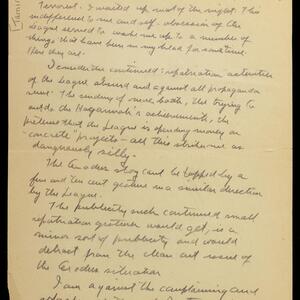 Terrorist. I waited up most of the night. This
indifference to me and self-obsession of the
League served to wake me up to a number of
things that have been in my head for sometime.
Here they are:
I consider the continued repatriation activities
of the League absurd and against all propaganda
sense. The sending of more boats, the trying to
outdo the Haganah's achievements, the
pretense that the League is spending money on
"concrete" projects – all this strikes me as
dangerously silly.
The Exodus story can't be topped by a
five and ten cent gesture in a similar direction
by the League.
The publicity such continued small
repatriation gestures would get, is a
minor sort of publicity and would
detract from the clean cut issue of
the Exodus situation
I am against the complaining and